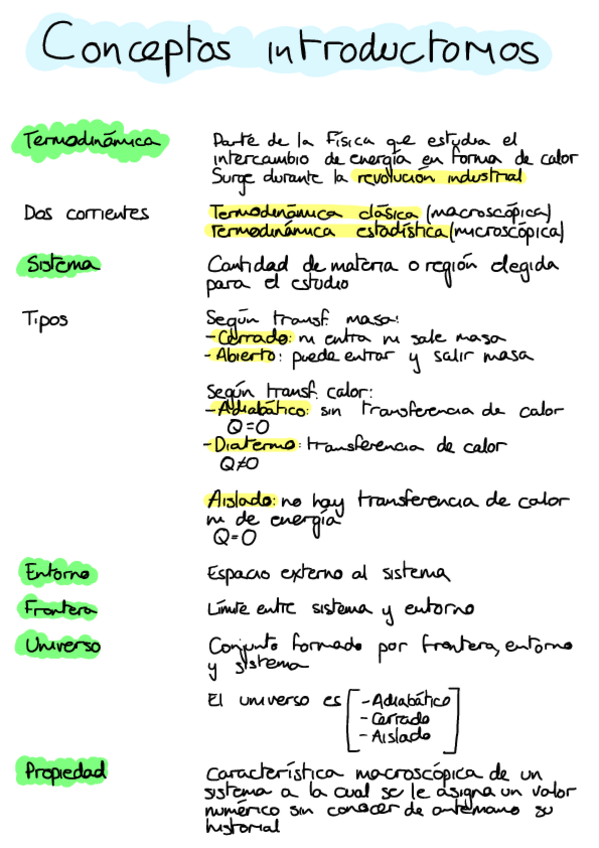 Conceptos introductorios
Termodinámica
Parte de la Física que estudia el
intercambio de energía en forma de calor
Surge durante la revolución industrial
Dos corrientes
Termodinámica clásica (macroscópica)
Termodinámica estadística (microscópica)
Sistema
Cantidad de materia o región elegida
para el estudio
Tipos
Según transf. masa:
-Cerrado: ni entra ni sale masa
-Abierto: puede entrar y salir masa
Según transf. calor:
-Adiabático: sin transferencia de calor
Q=0
-Diatermo: transferencia de calor
Q≠0
Aislado: no hay transferencia de calor
ni de energía
Q=0
Entorno
Espacio externo al sistema
Frontera
Límite entre sistema y entorno
Universo
Conjunto formado por frontera, entorno
y sistema
El universo es [-Adiabático
-Cerrado
-Aislado]
Propiedad
Característica macroscópica de un
sistema a la cual se le asigna un valor
numérico sin conocer de antemano su
historial